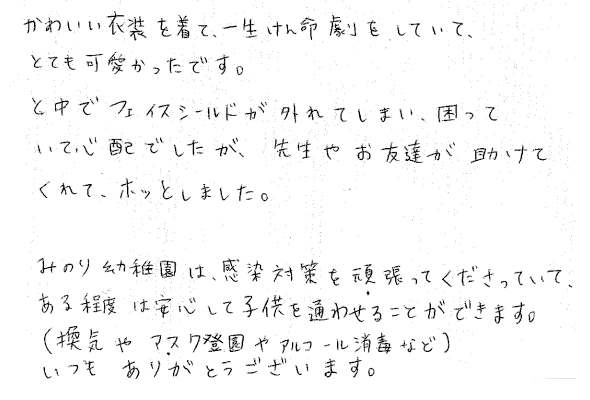 かわいい衣装を着て、一生けん命劇をしていて、
とても可愛かったです。
と中でフェイスシールドが外れてしまい、困って
いて心配でしたが、先生やお友達が助けて
くれて、ホッとしました。
みのり幼稚園は、感染対策を頑張ってくださっていて、
ある程度は安心して子供を通わせることができます。
(換気やマスク登園やアルコール消毒など)
いつもありがとうございます。